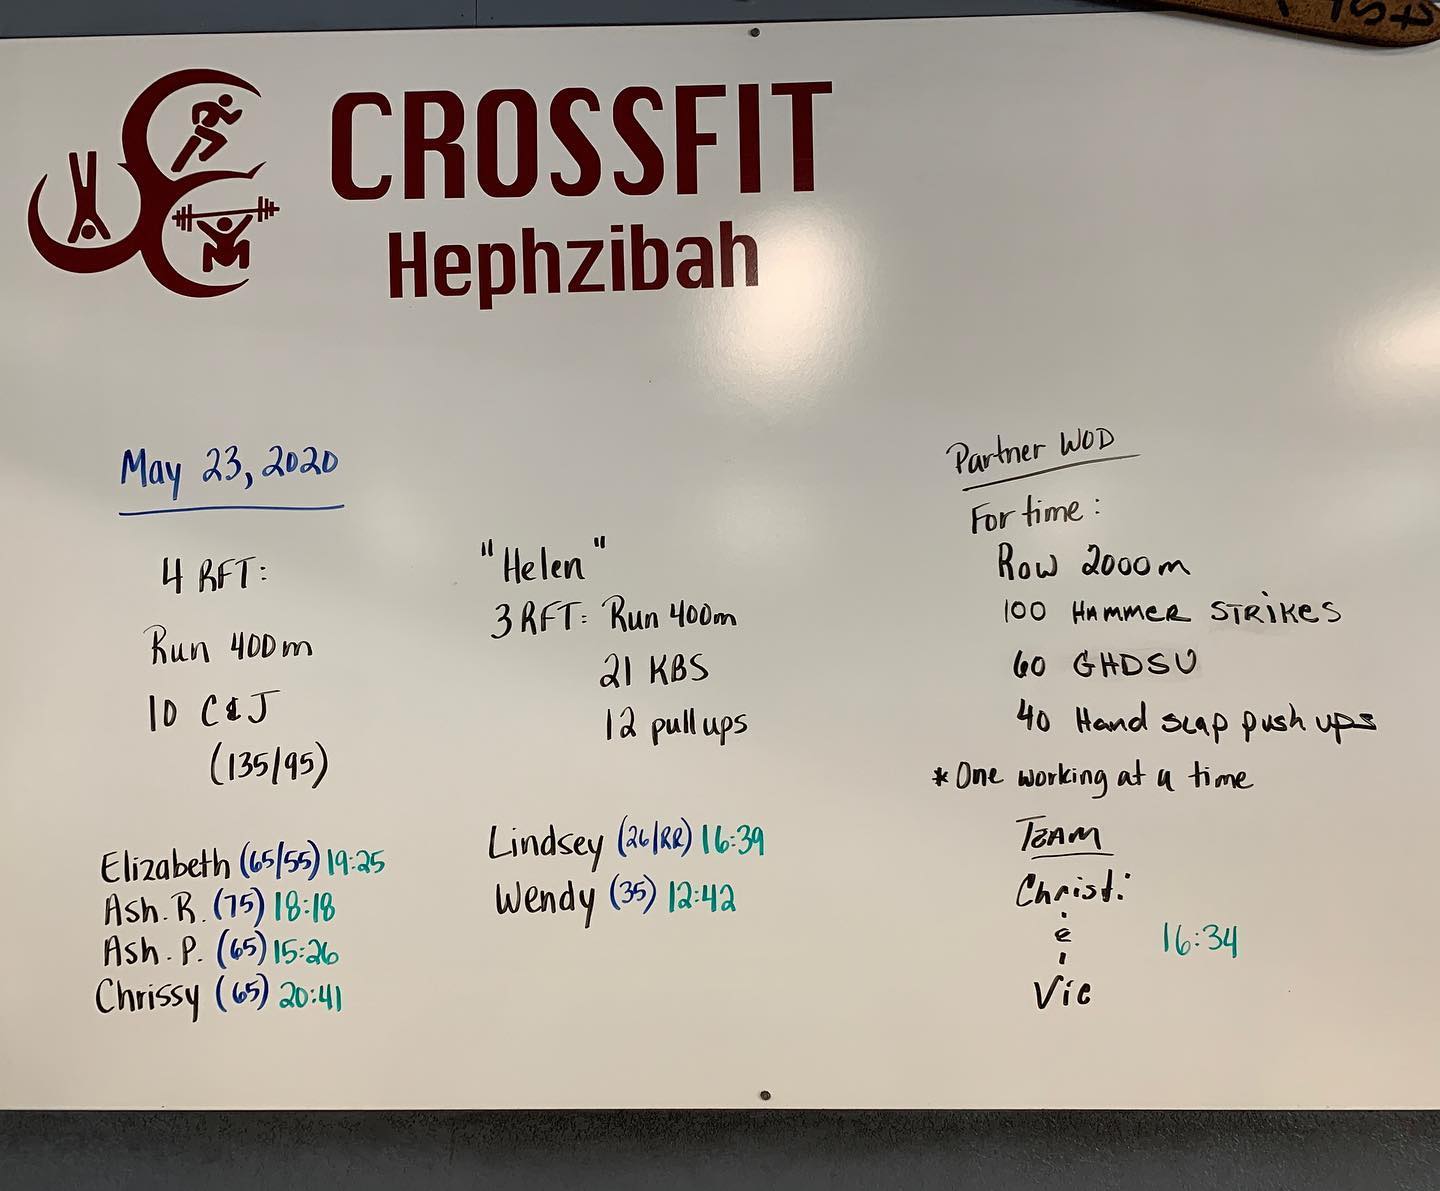 CROSSFIT
Hephzibah
May 23, 2020
4 RFT:
Run 400m
10 C&J
(135/95)
Elizabeth (65/55) 19:25
Ash. R. (75) 18:18
Ash. P. (65) 15:26
Chrissy (65) 20:41
"Helen"
3 RFT: Run 400m
21 KBS
12 pull ups
Lindsey (26/RR) 16:39
Wendy (35) 12:42
Partner WOD
For time:
Row 2000m
100 HAMMER STRIKES
60 GHDSU
40 Hand slap push ups
*One working at a time
TEAM
Christi
&
Vic
16:34